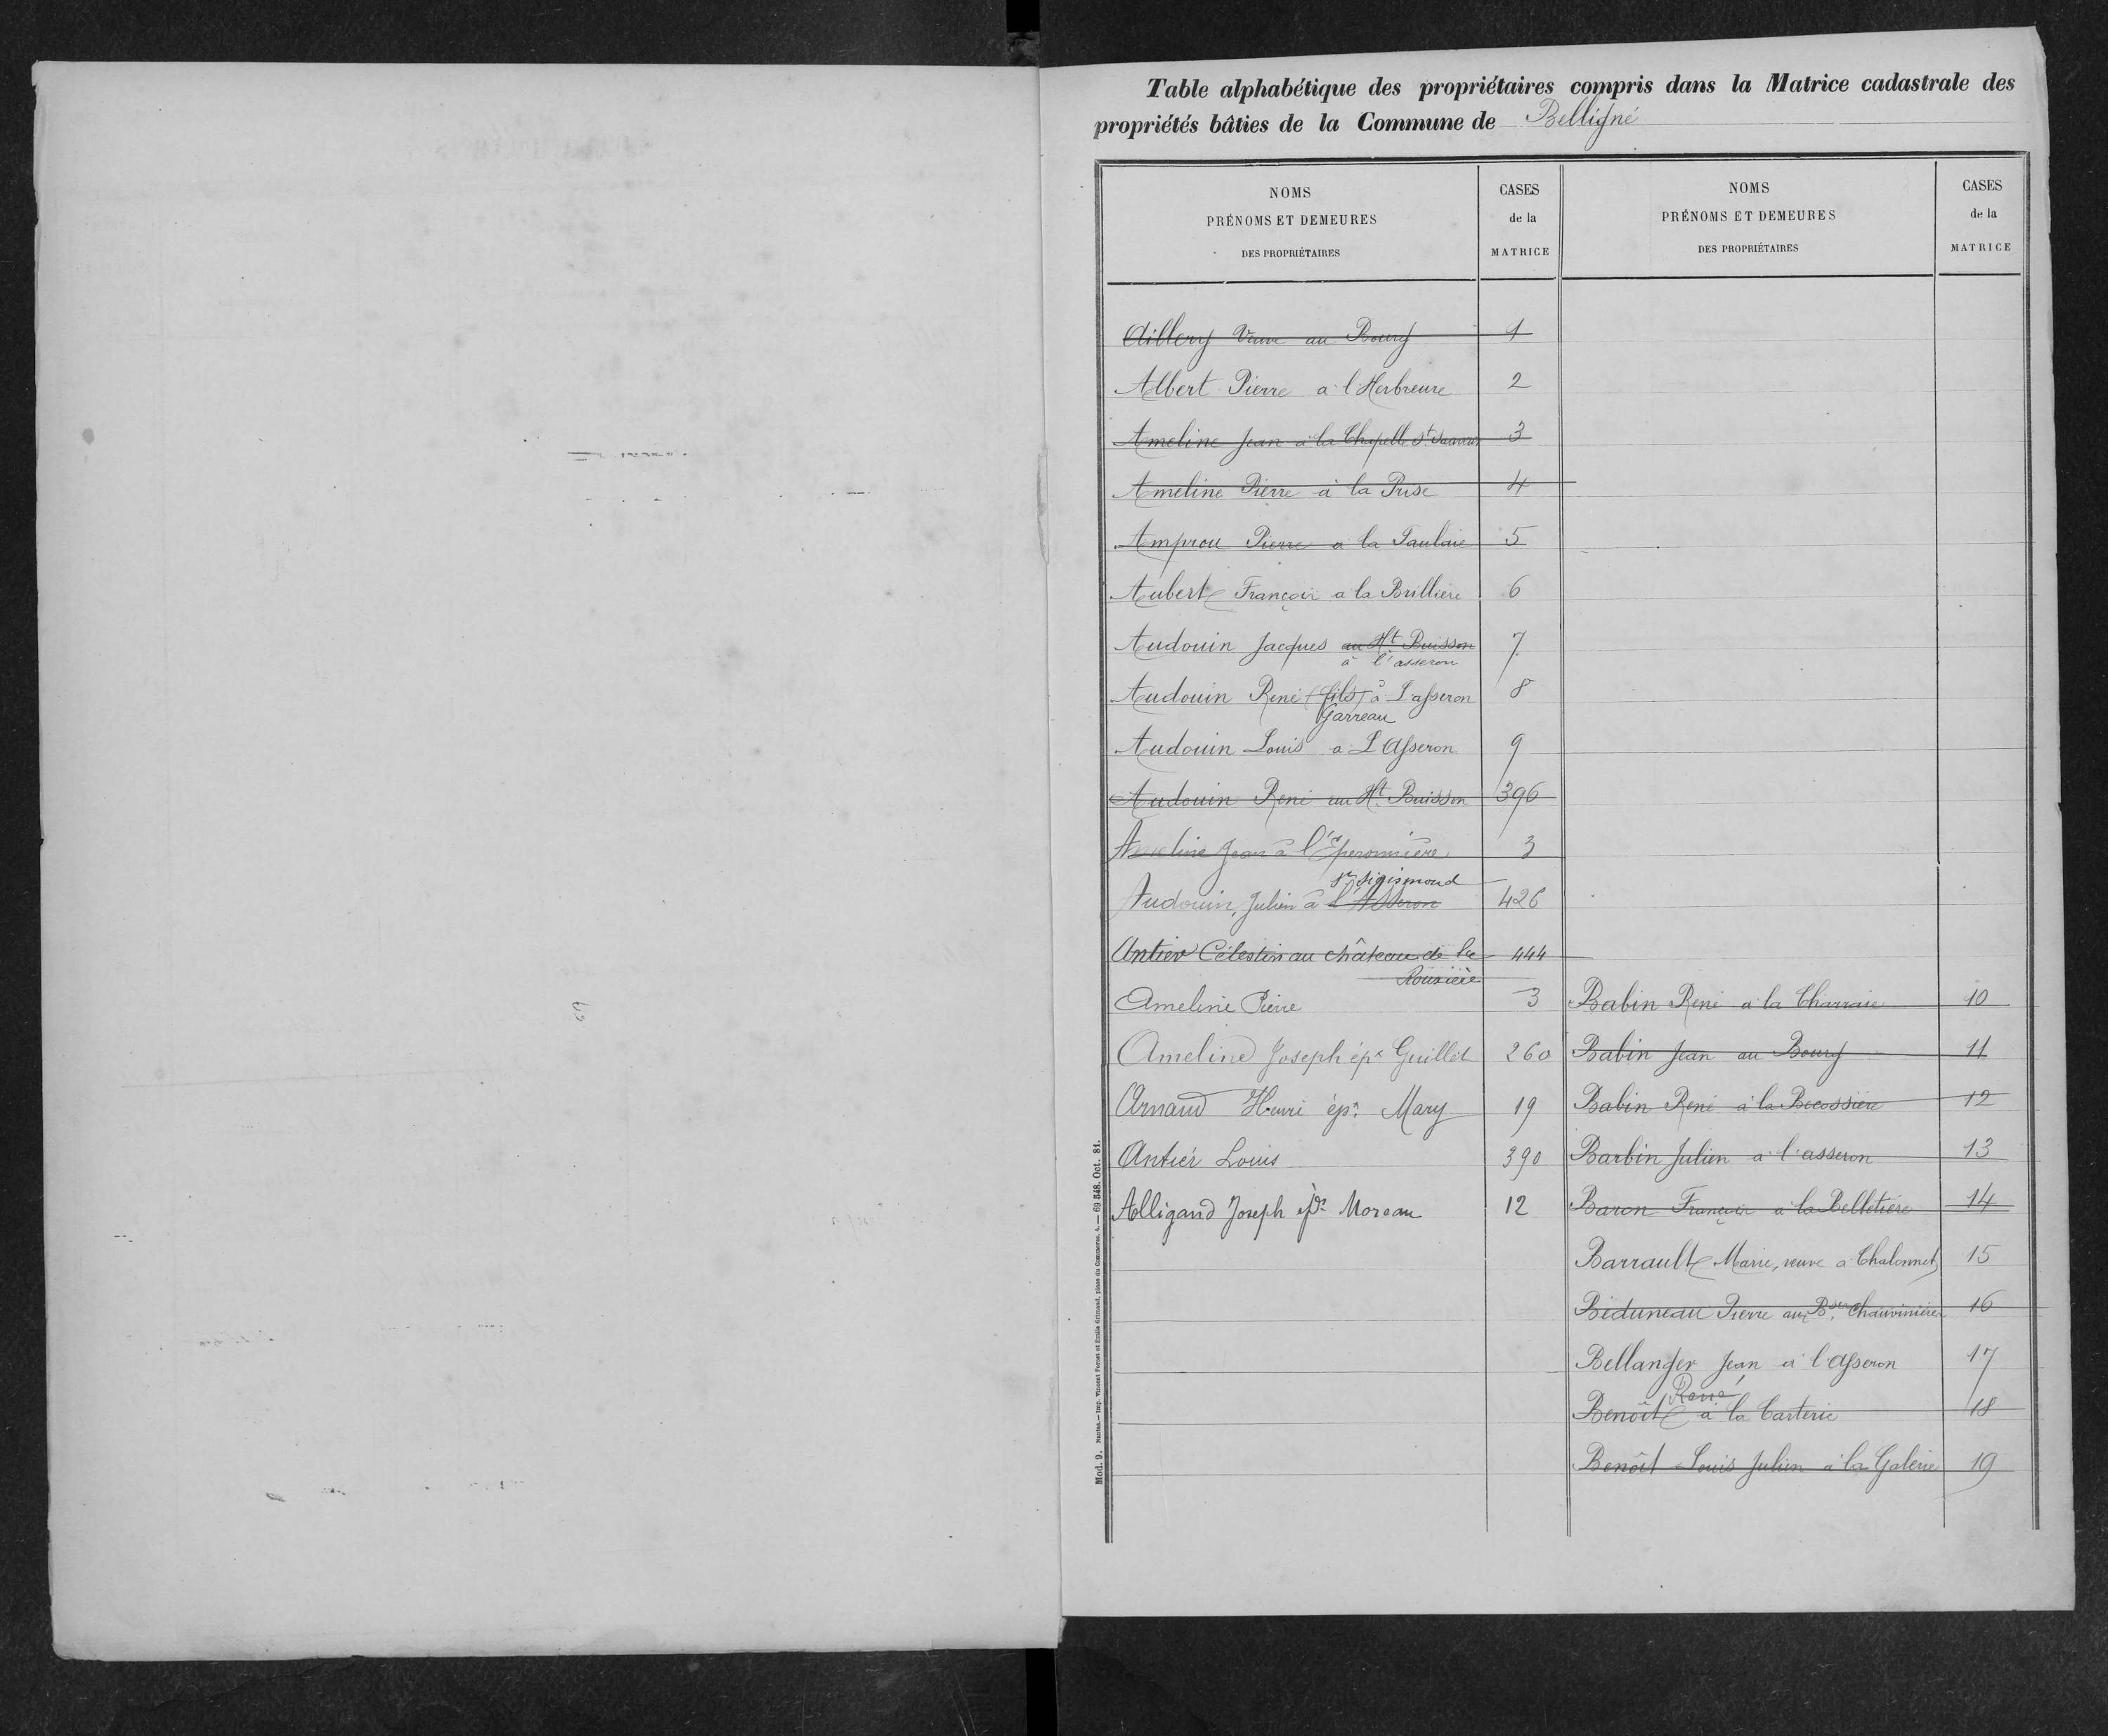 Table alphabétique des propriétaires compris dans la Matrice cadastrale des
propriétés bâties de la Commune de Belligné
NOMS
PRÉNOMS ET DEMEURES
DES PROPRIÉTAIRES
CASES
de la
MATRICE
Aillery Veuve au Bourg 1
Albert Pierre à l'Herbreure 2
Ameline Jean à la Chapelle St Sauveur 3
Ameline Pierre à la Prise 4
Amprou Pierre à la Paulaie 5
Aubert François à la Brillière 6
Audouin Jacques au Ht Buisson 7
à l'asseron
Audouin René (fils) à L'asseron 8
Garreau
Audouin Louis à L'Asseron 9
Audouin René au Ht Buisson 396
Ameline Jean à l'Éperonnière 3
St Sigismond
Audouin, Julien à l'Asseron 426
Antier Célestin au château de la 444
Rousière
Ameline Pierre 3
Ameline Joseph épx Guillet 260
Arnaud Henri épx Mary 19
Antier Louis 390
Alligand Joseph épx Moreau 12
NOMS
PRÉNOMS ET DEMEURES
DES PROPRIÉTAIRES
CASES
de la
MATRICE
Babin René à la Charraie 10
Babin Jean au Bourg 11
Babin René à la Becossière 12
Barbin Julien à l'asseron 13
Baron François à la Pelletière 14
Barrault Marie, veuve à Chalonnet 15
Béduneau Pierre aux Bses Chauvinières 16
Bellanger Jean à l'Asseron 17
René
Benoît à la Carterie 18
Benoît Louis Julien à la Galerie 19
Mod. 9. Nantes.— Imp. Vincent Forest et Émile Grimaud, place du Commerce, 4. — 69 548. Oct. 81.